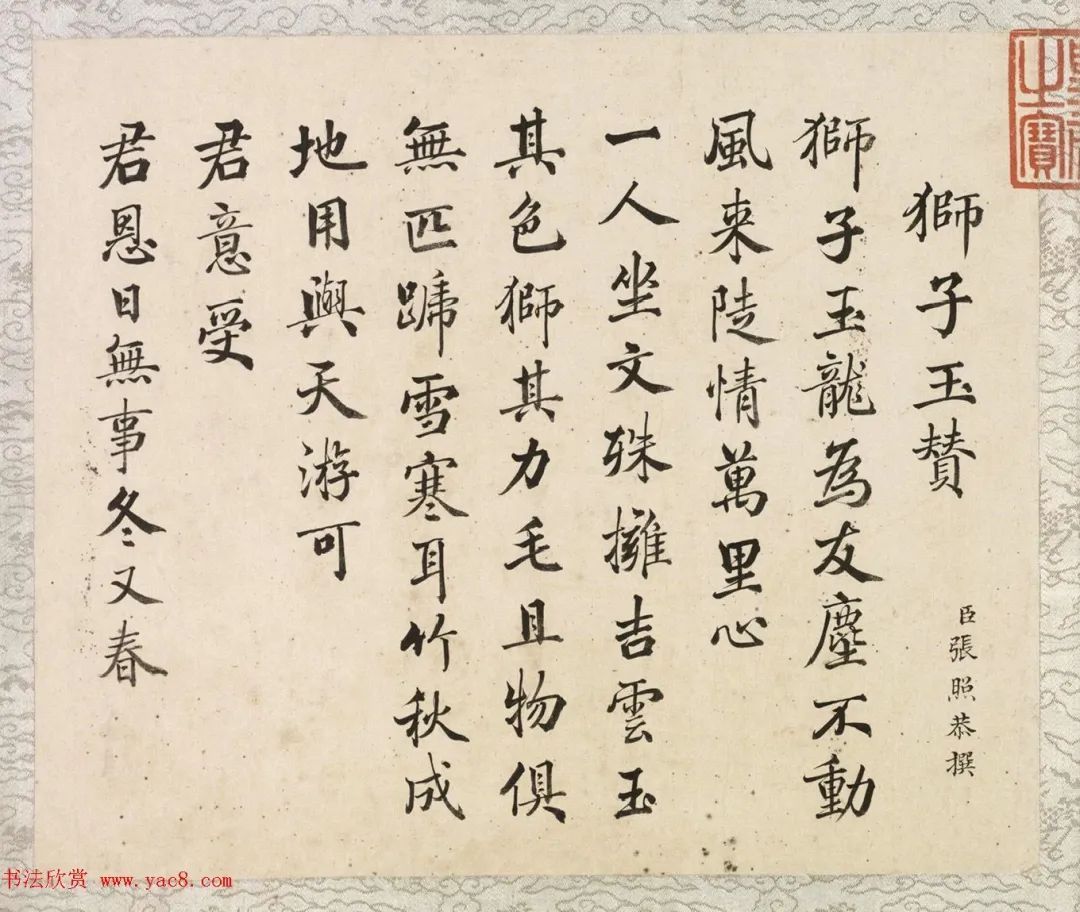 獅子玉賛
臣張照恭撰
獅子玉龍為友塵不動
風来陡情萬里心
一人坐文殊擁吉雲玉
其色獅其力毛且物俱
無匹蹄雪寒耳竹秋成
地用與天游可
君意受
君恩日無事冬又春
之寶
书法欣赏 www.yac8.com